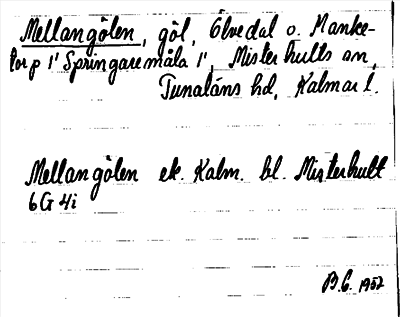 Mellangölen, göl, Ölvedal o. Manke-
torp 1' Springaremåla 1', Misterhults sn,
Tunaläns hd, Kalmar l.
Mellangölen ek. Kalm. bl. Misterhult
6G 4i
B.G. 1952